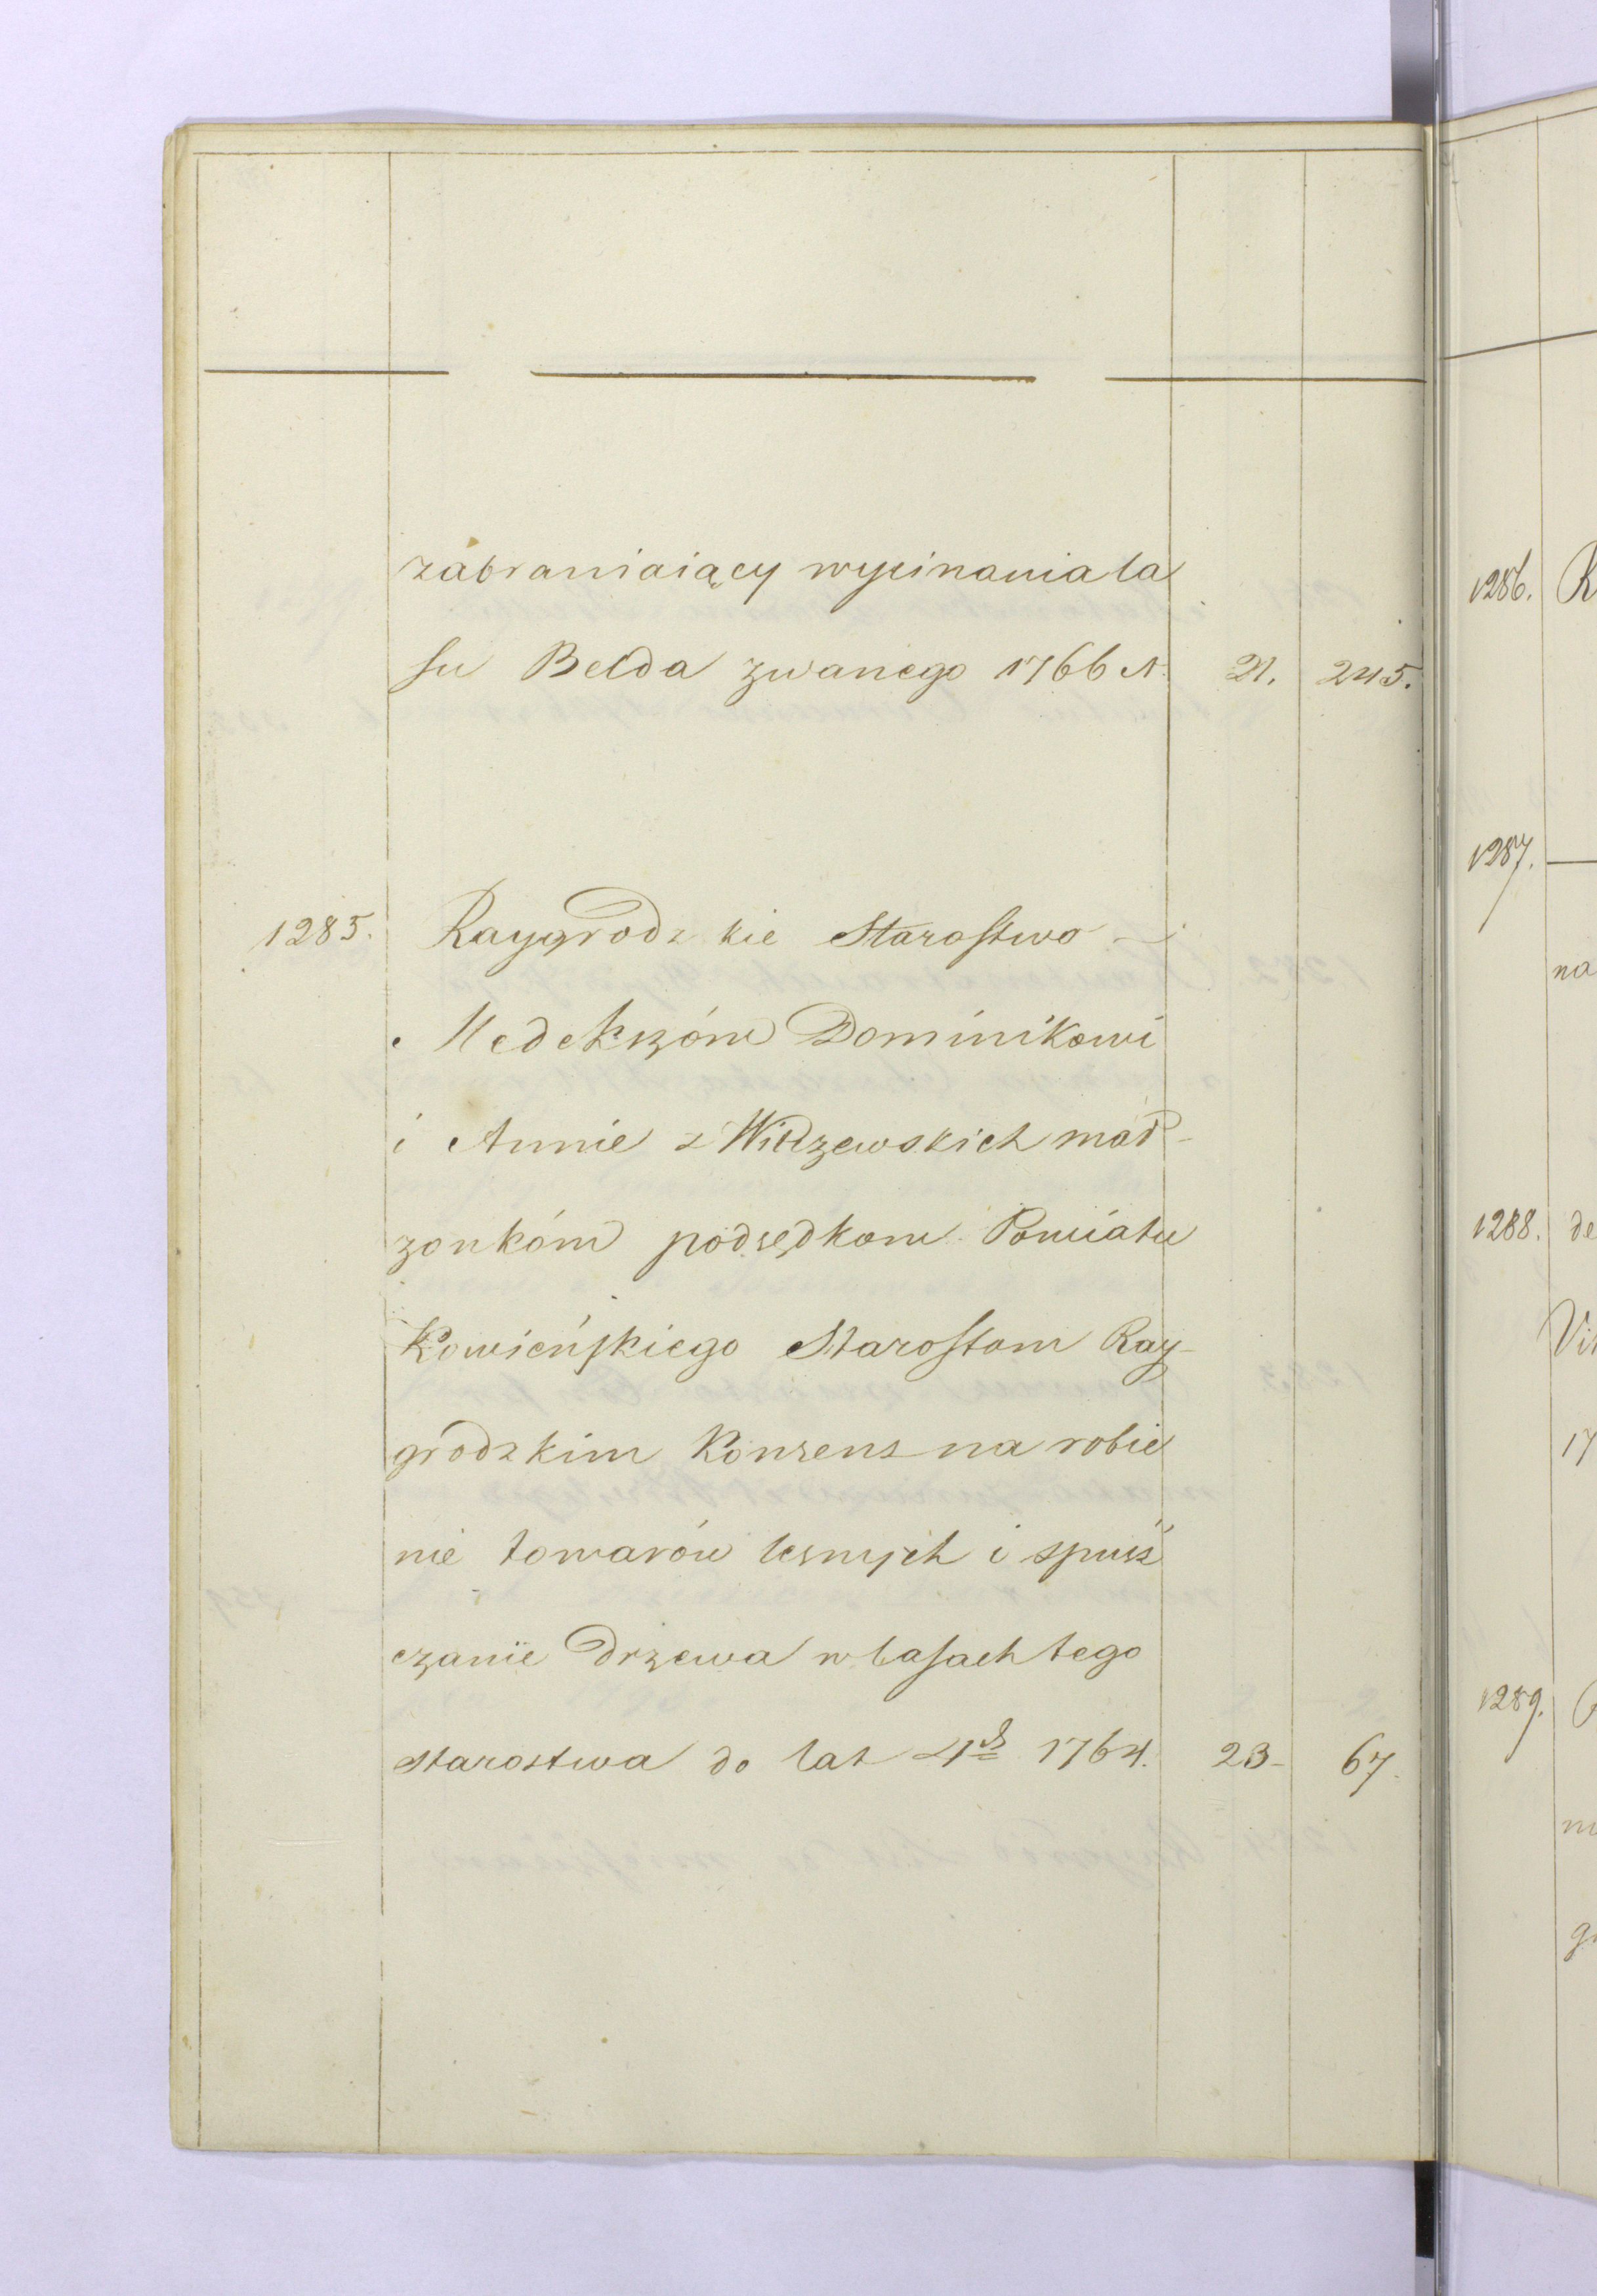 zabraniaiący wycinania la
su Bełda zwanego 1766 r. 21. 245.
1285. Raygrodzkie Starostwo —
Medekszóm Dominikowi
i Annie z Wilczewskich mał-
zonkóm podsędkom Powiatu
Kowieńskiego Starostom Ray-
grodzkim Konsens na robie
nie towarów lesnych i spusz
czanie Drzewa w lasach tego
starostwa do lat 4ch 1764. 23- 67.
1286. R
1287. —
na
1288. de
17
1289.